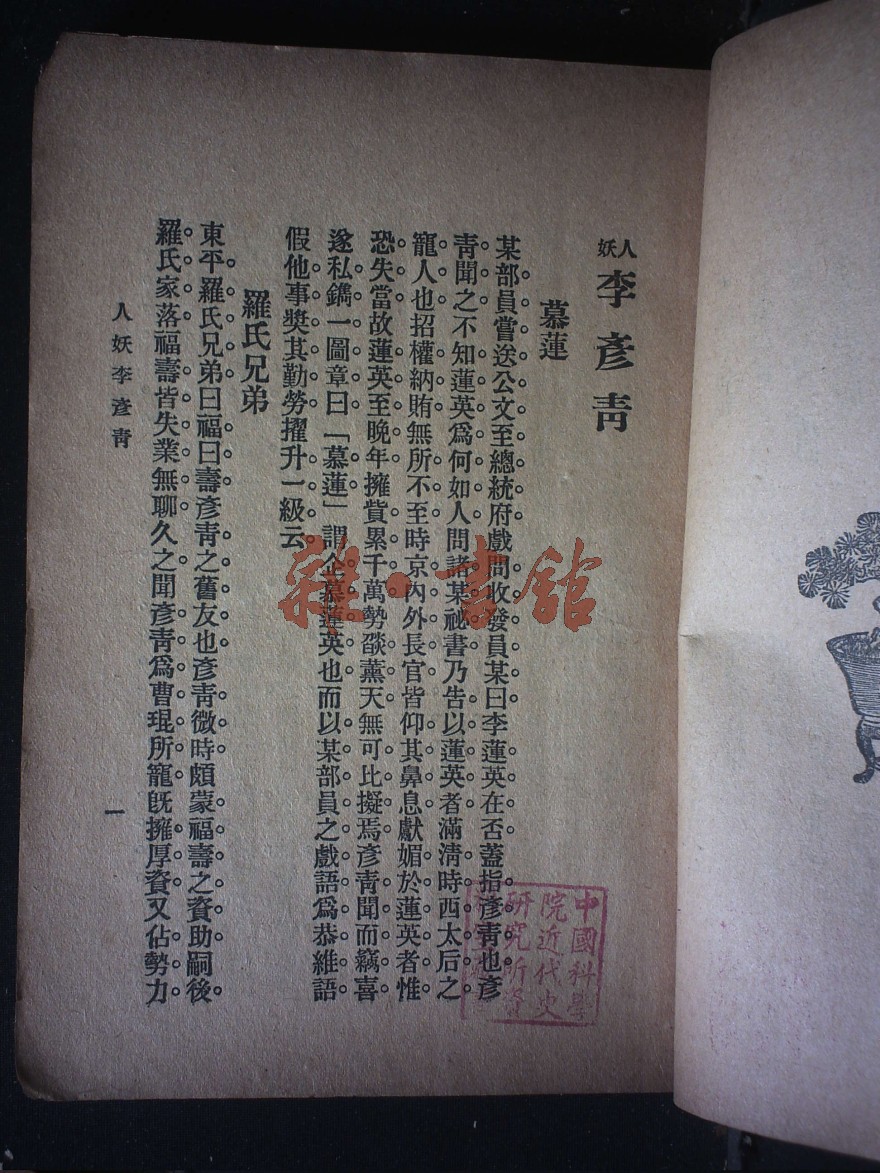 人妖
李彥青
慕蓮
某部員嘗送公文至總統府戲問收發員某曰李蓮英在否蓋指彥青也彥
青聞之不知蓮英爲何如人問諸某祕書乃告以蓮英者滿清時西太后之
寵人也招權納賄無所不至時京內外長官皆仰其鼻息獻媚於蓮英者惟
恐失當故蓮英至晚年擁貲累千萬勢燄薰天無可比擬焉彥青聞而竊喜
遂私鐫一圖章曰「慕蓮」謂企慕蓮英也而以某部員之戲語爲恭維語
假他事獎其勤勞擢升一級云
羅氏兄弟
東平羅氏兄弟曰福曰壽彥青之舊友也彥青微時頗蒙福壽之資助嗣後
羅氏家落福壽皆失業無聊久之聞彥青爲曹琨所寵旣擁厚資又佔勢力
人妖李彥青
一
雜·書館
中國科學
院近代史
研究所資